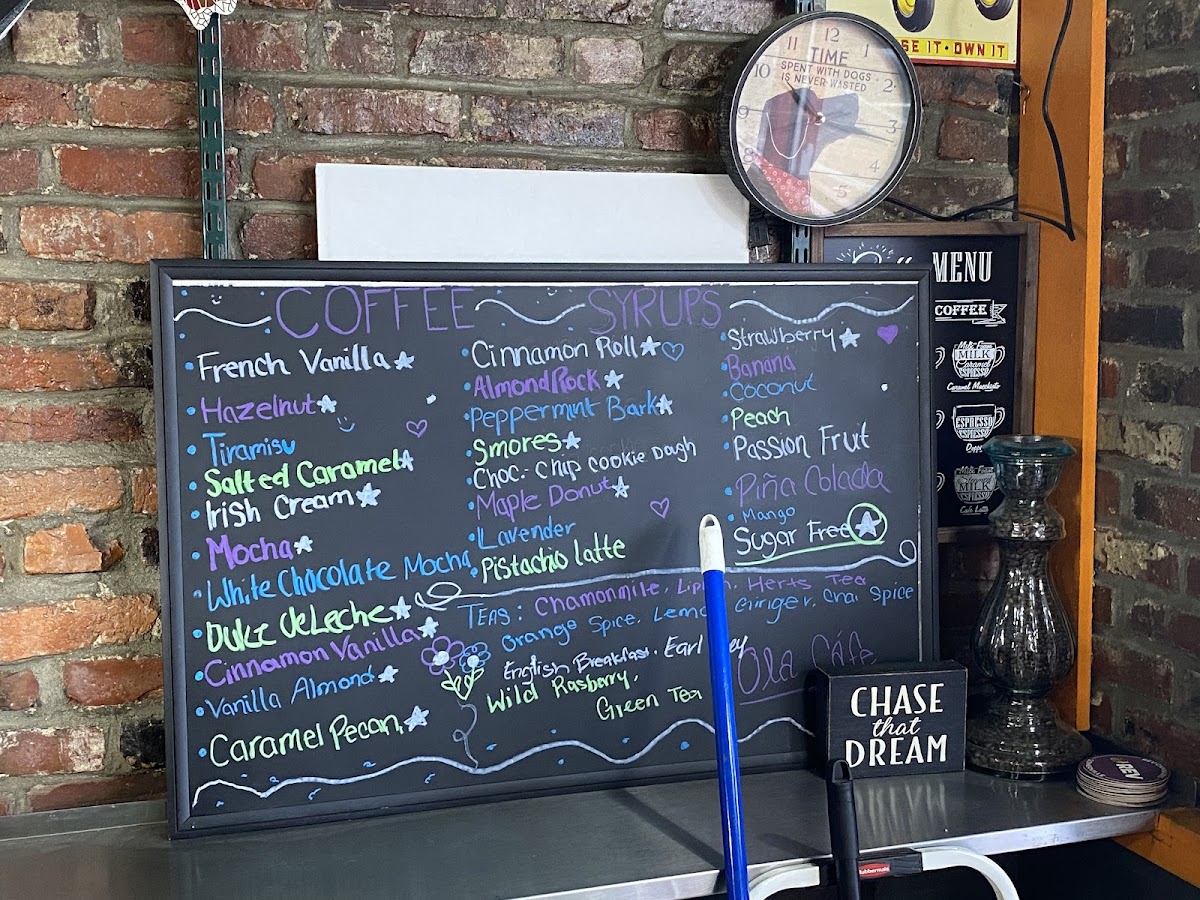 SE IT • OWN IT
11 12 1
10 2
9 3
4
5
TIME
SPENT WITH DOGS
IS NEVER WASTED
MENU
COFFEE
Milk Foam
MILK
Caramel
ESPRESSO
Caramel Macchiato
ESPRESSO
ESPRESSO
Milk Foam
MILK
ESPRESSO
Cafe Latte
COFFEE SYRUPS
French Vanilla
Hazelnut
Tiramisu
Salted Caramel
Irish Cream
Mocha
White Chocolate Mocha
Dulce de Leche
Cinnamon Vanilla
Vanilla Almond
Caramel Pecan
Cinnamon Roll
Almond Rock
Peppermint Bark
Smores
Choc. Chip Cookie Dough
Maple Donut
Lavender
Pistachio latte
Strawberry
Banana
Coconut
Peach
Passion Fruit
Piña Colada
Mango
Sugar Free
TEAS: Chamonmile, Herbs Tea
Orange Spice, Ginger, Chai Spice
English Breakfast,
Wild Rasberry,
Green Tea
Ola Cáfe
CHASE
that
DREAM
REV
Rubbermaid